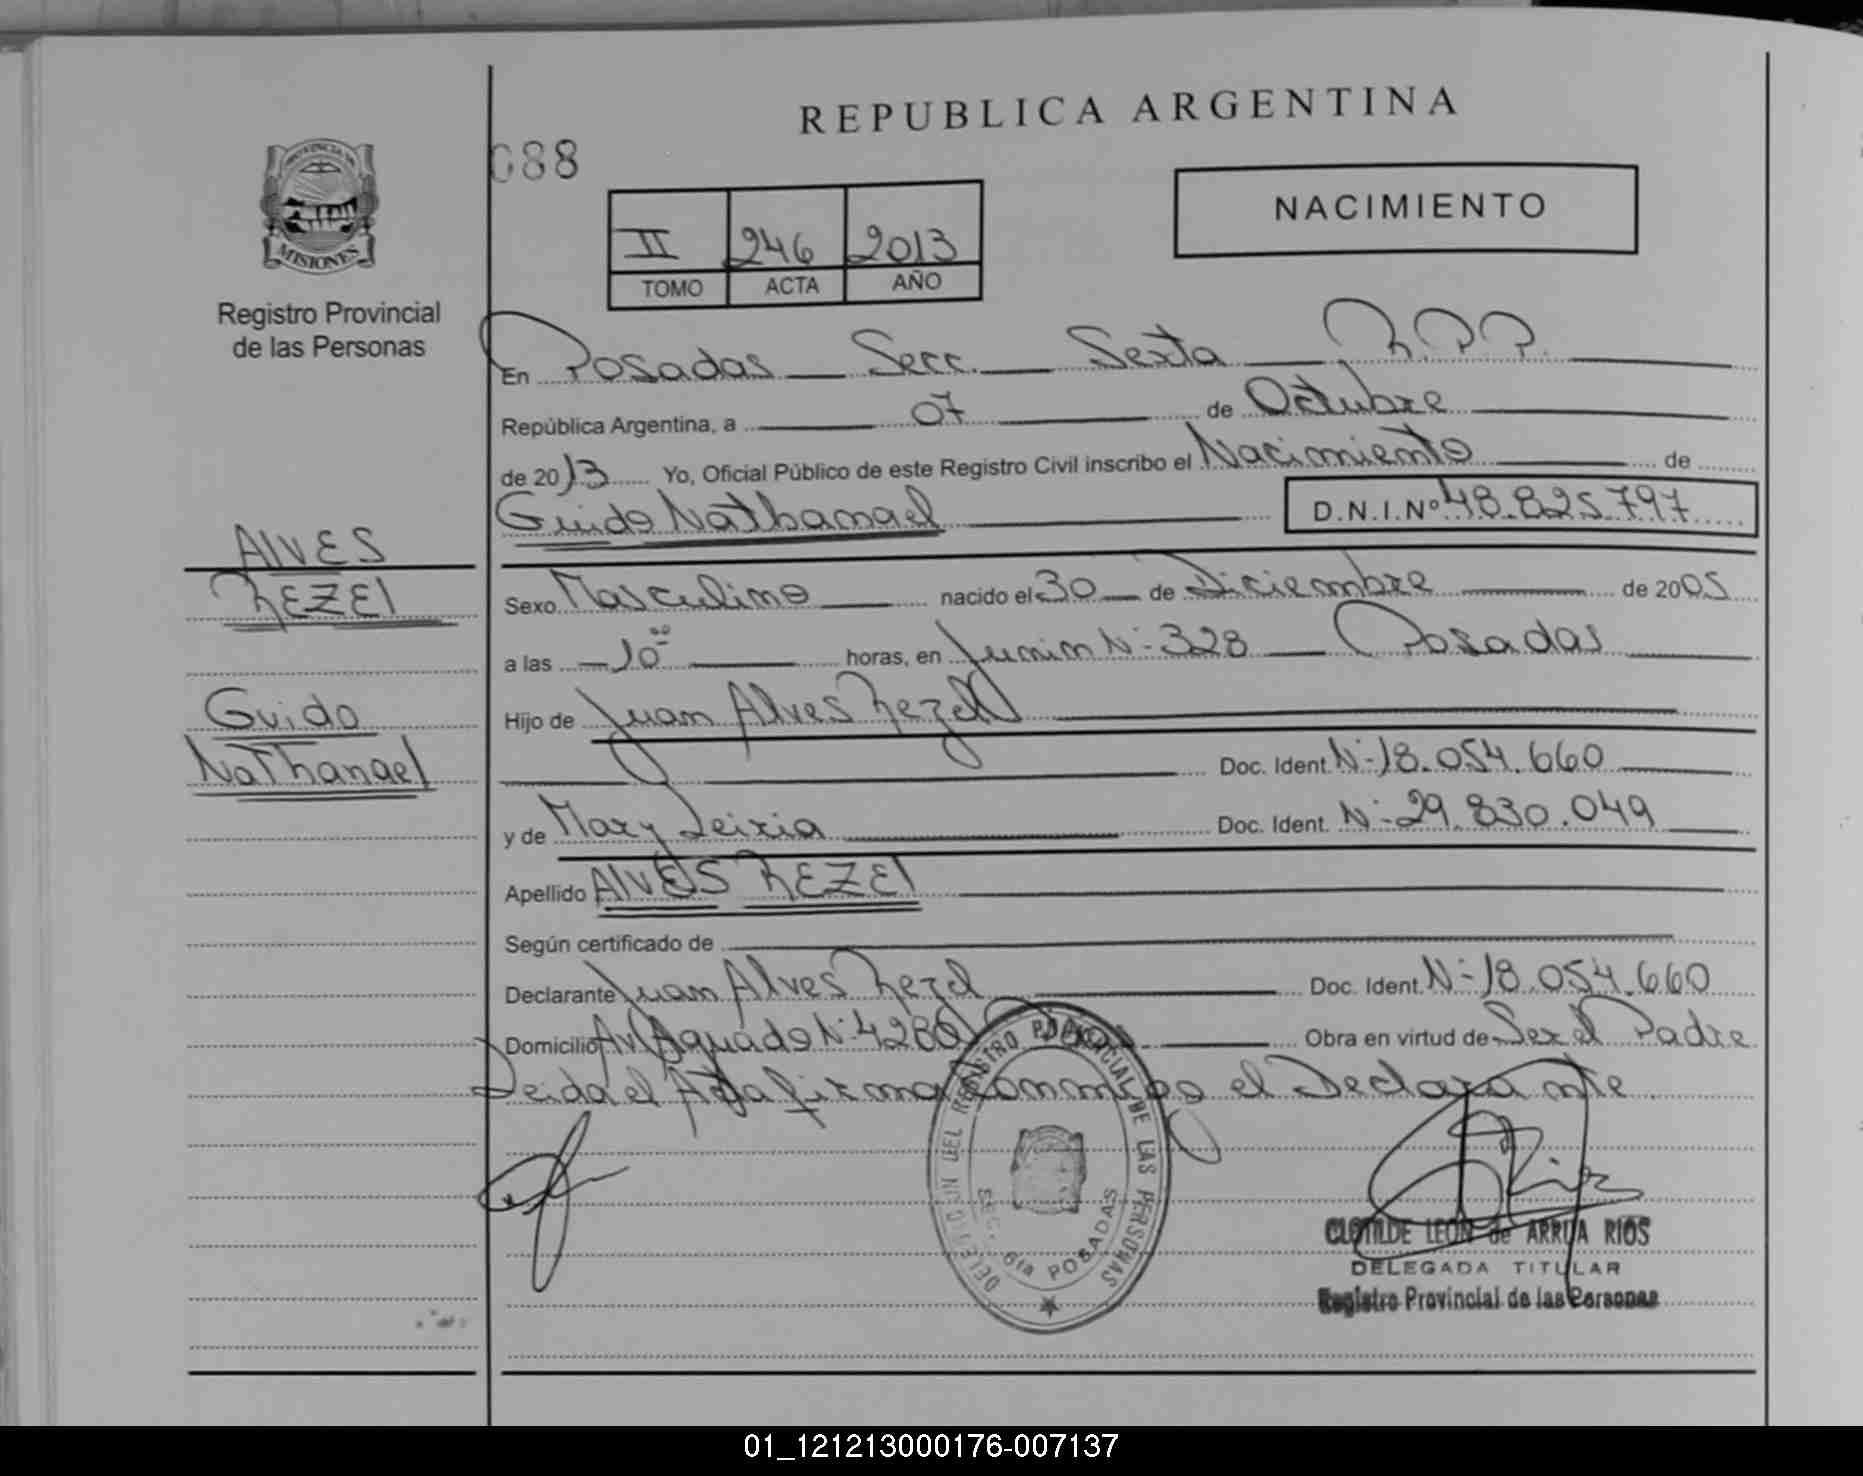 REPUBLICA ARGENTINA
088
NACIMIENTO
II 246 2013
TOMO ACTA AÑO
PROVINCIA DE
MISIONES
Registro Provincial
de las Personas
En Posadas Secc. Sexta R.P.P.
República Argentina, a 07 de Octubre
de 2013 Yo, Oficial Público de este Registro Civil inscribo el Nacimiento de
Guido Nathanael D.N.I.Nº 48.825.797
ALVES
REZEL
Guido
Nathanael
Sexo Masculino nacido el 30 de Diciembre de 2005
a las 10 00 horas, en Junin N- 328 Posadas
Hijo de Juan Alves Rezel
Doc. Ident. N- 18.054.660
y de Mary Leiria Doc. Ident. N- 29.830.049
Apellido ALVES REZEL
Según certificado de
Declarante Juan Alves Rezel Doc. Ident. N- 18.054.660
Domicilio Av Aguado N- 4286 Obra en virtud de Ser el Padre
Leida el Acta firma conmigo el Declarante
DELEGACION DEL REGISTRO PROVINCIAL DE LAS PERSONAS
SECC. 6ta POSADAS
CLOTILDE LEON de ARRUA RIOS
DELEGADA TITULAR
Registro Provincial de las Personas
01_121213000176-007137